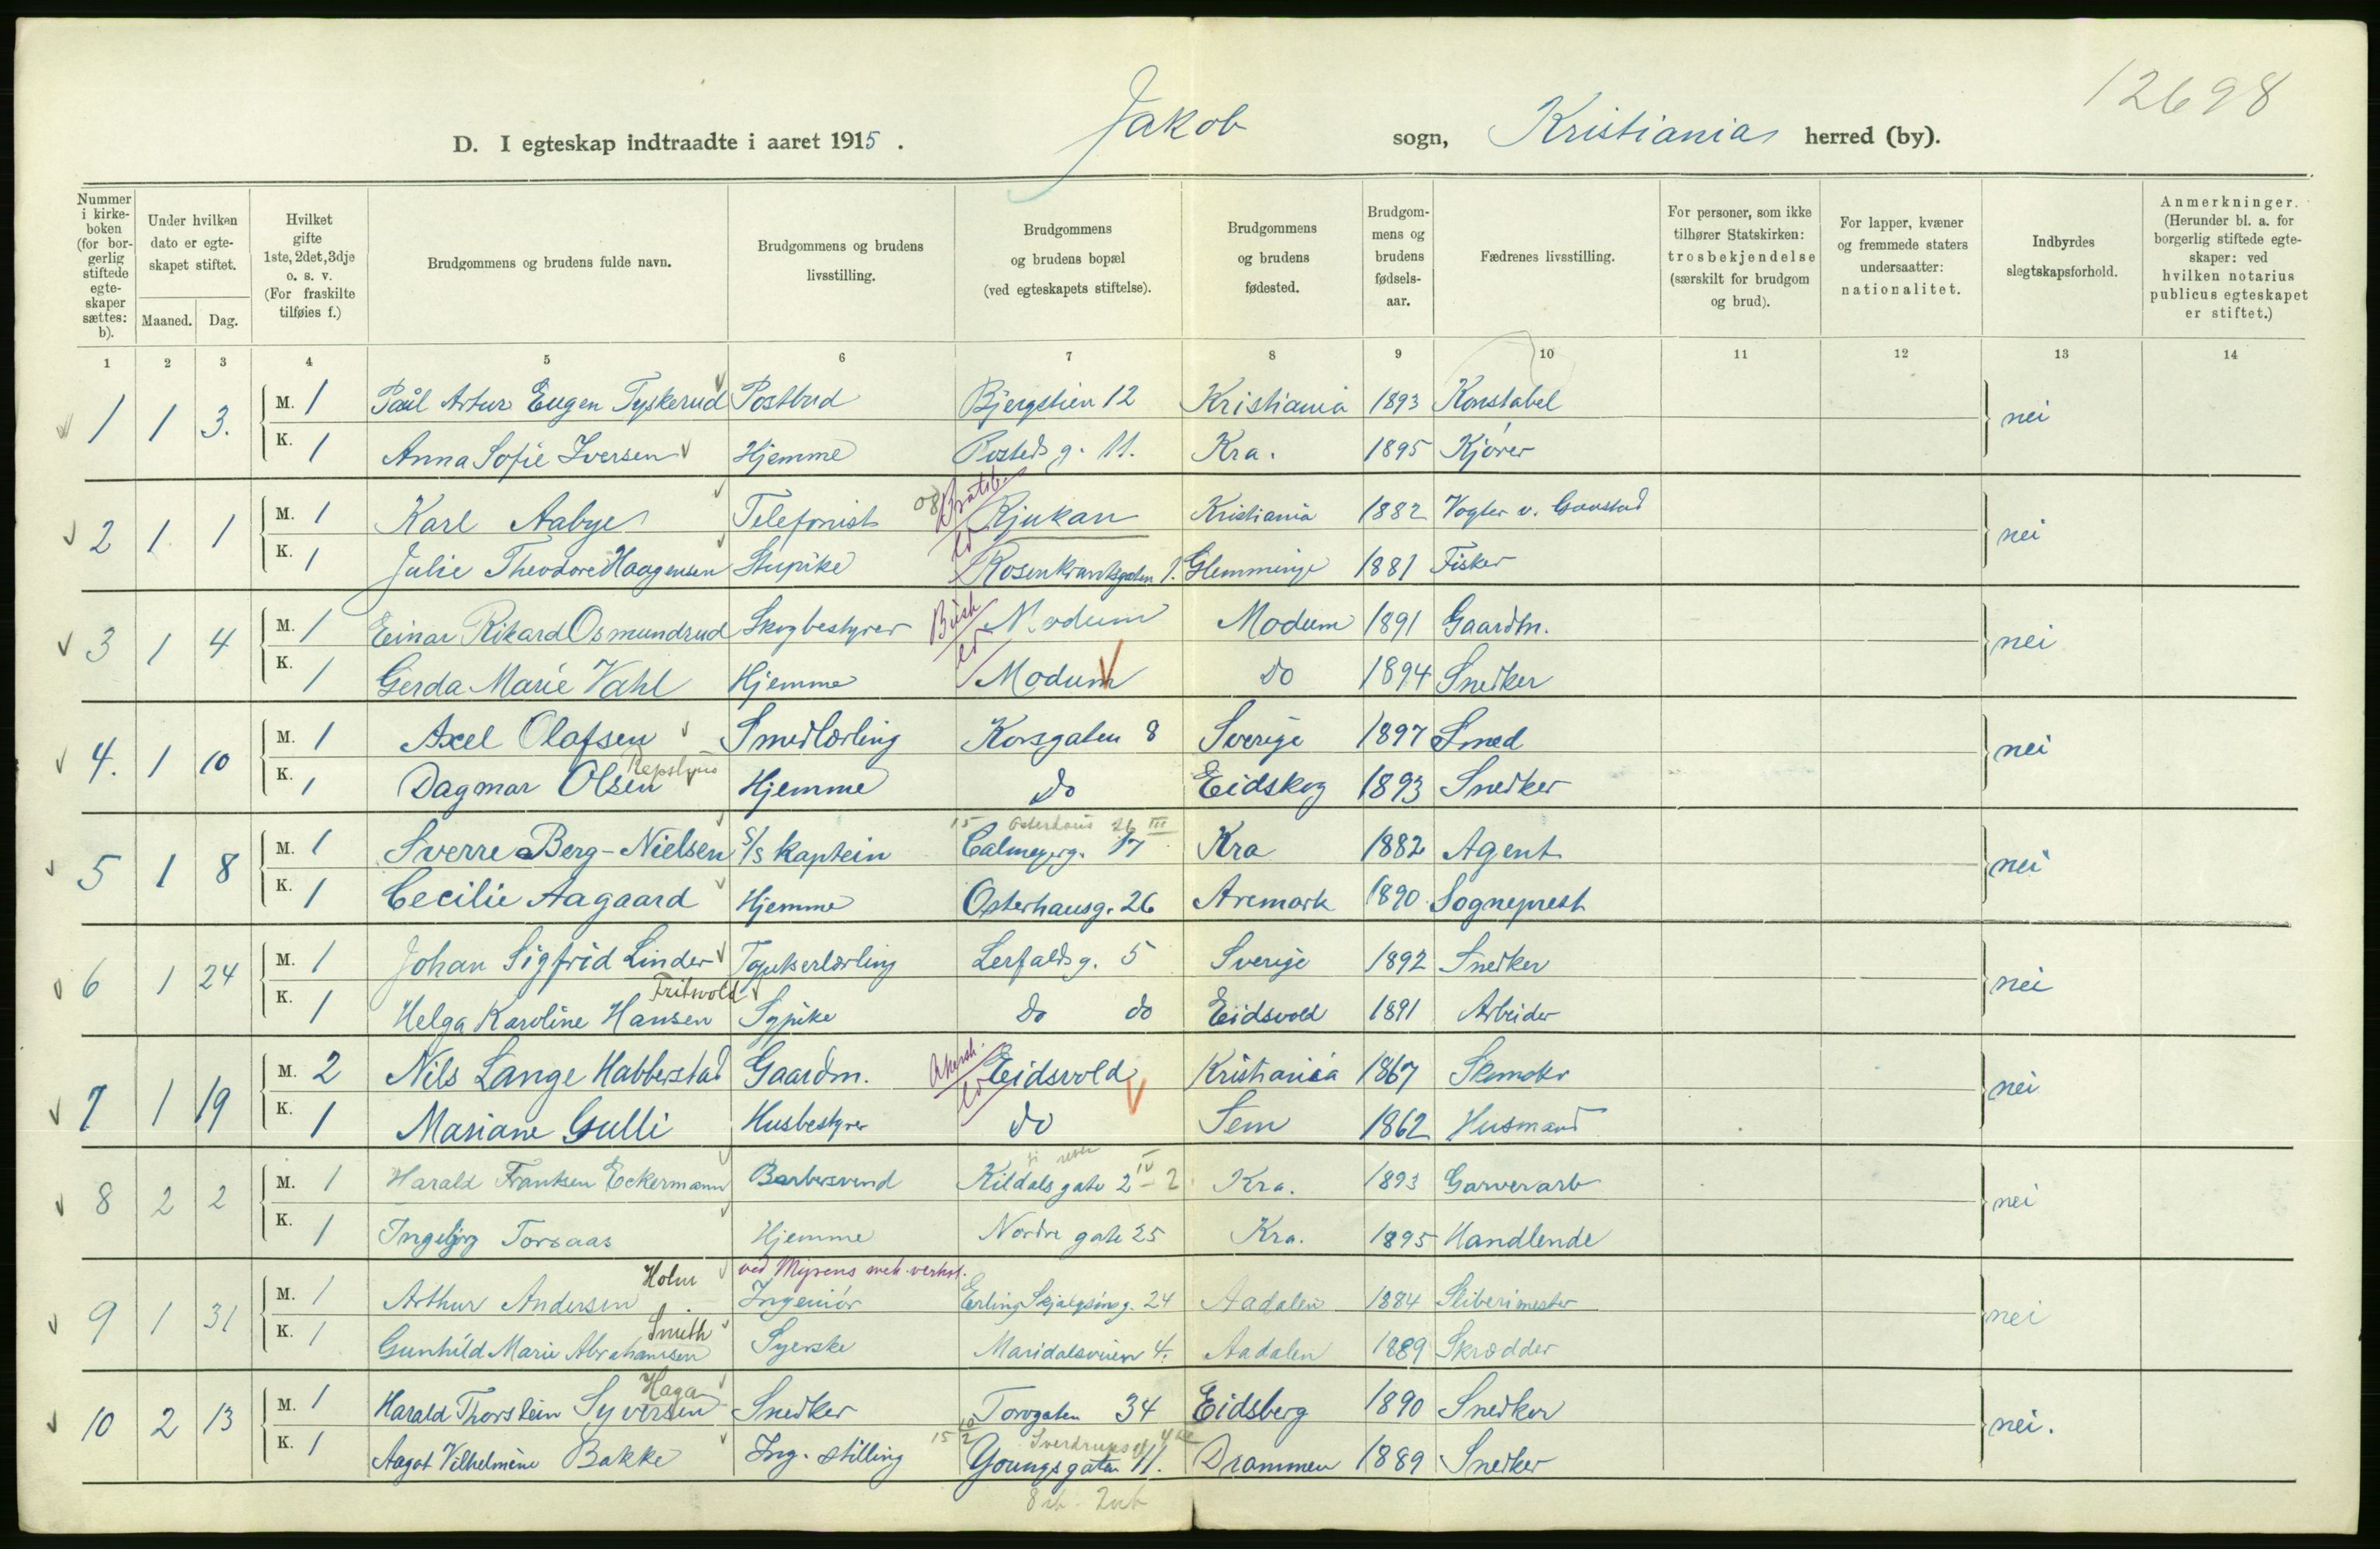 12698
D. I egteskap indtraadte i aaret 1915. Jakob sogn, Kristiania herred (by).
Nummer i kirke-boken (for bor-gerlig stiftede egte-skaper sættes: b).
Under hvilken dato er egte-skapet stiftet.
Maaned. Dag.
Hvilket gifte 1ste, 2det, 3dje o. s. v. (For fraskilte tilføies f.)
Brudgommens og brudens fulde navn.
Brudgommens og brudens livsstilling.
Brudgommens og brudens bopæl (ved egteskapets stiftelse).
Brudgommens og brudens fødested.
Brudgom-mens og brudens fødsels-aar.
Fædrenes livsstilling.
For personer, som ikke tilhører Statskirken: trosbekjendelse (særskilt for brudgom og brud).
For lapper, kvæner og fremmede staters undersaatter: nationalitet.
Indbyrdes slegtskapsforhold.
Anmerkninger. (Herunder bl. a. for borgerlig stiftede egte-skaper: ved hvilken notarius publicus egteskapet er stiftet.)
1 2 3 4 5 6 7 8 9 10 11 12 13 14
1 1 3. M. 1 Paül Artur Eugen Tyskerud Postbud Bjergstien 12 Kristiania 1893 Konstabel nei
K. 1 Anna Sofie Iversen Hjemme Posteds g. 11. Kra. 1895 Kjører
Bratsb.
2 1 1 M. 1 Karl Aabye Telefonist Rjukan Kristiania 1882 Vogter v. Gaustad nei
K. 1 Julie Theodore Haagensen Stupike Rosenkrantsgaten 1. Glemminge 1881 Fisker
Busk
3 1 4 M. 1 Einar Rikard Osmundrud Skogbestyrer Modum Modum 1891 Gaardm. nei
K. 1 Gerda Marie Vahl Hjemme Modum do 1894 Snedker
4. 1 10 M. 1 Axel Olafsen Smedlærling Korsgaten 8 Sverige 1897 Smed nei
K. 1 Dagmar Olsen Hjemme do Eidskog 1893 Snedker
15 Osterhaus 26 III
5 1 8 M. 1 Sverre Berg-Nielsen S/S kaptein Calmeyerg. 17 Kra 1882 Agent nei
K. 1 Cecilie Aagaard Hjemme Osterhausg. 26 Aremark 1890 Sogneprest
6 1 24 M. 1 Johan Sigfrid Linder Tapetserlærling Lerfaldsg. 5 Sverige 1892 Snedker nei
Tritvold
K. 1 Helga Karoline Hansen Sypike do do Eidsvold 1891 Arbeider
Akersh.
7 1 19 M. 2 Nils Lange Habberstad Gaardm. Eidsvold Kristiania 1867 Skomaker nei
K. 1 Mariane Gulli Husbestyrer do Sem 1862 Husmand
8 2 2 M. 1 Harald Frantsen Eckermann Barbersvend Kildals gate 2 IV - 2 Kra. 1893 Garverarb nei
K. 1 Ingebjørg Torsaas Hjemme Nordre gate 25 Kra. 1895 Handlende
Holm ved Myrens mek. verkst.
9 1 31 M. 1 Arthur Andersen Ingeniør Erling Skjalgsøns g. 24 Aadalen 1884 Sliberimester nei
Smith
K. 1 Gunhild Marie Abrahamsen Syerske Maridalsveien 4. Aadalen 1889 Skrædder
Haga
10 2 13 M. 1 Harald Thorstein Syversen Snedker Torvgaten 34 Eidsberg 1890 Snedker nei.
Sverdrups
K. 1 Aagot Vilhelmine Bakke Ing. stilling Youngsgaten 11. Drammen 1889 Snedker